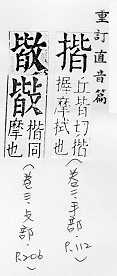 重訂直音篇
揩
丘皆切揩
摩拭也
（卷三・手部・P.112）
揩同
摩也
（卷三・攴部・P.206）